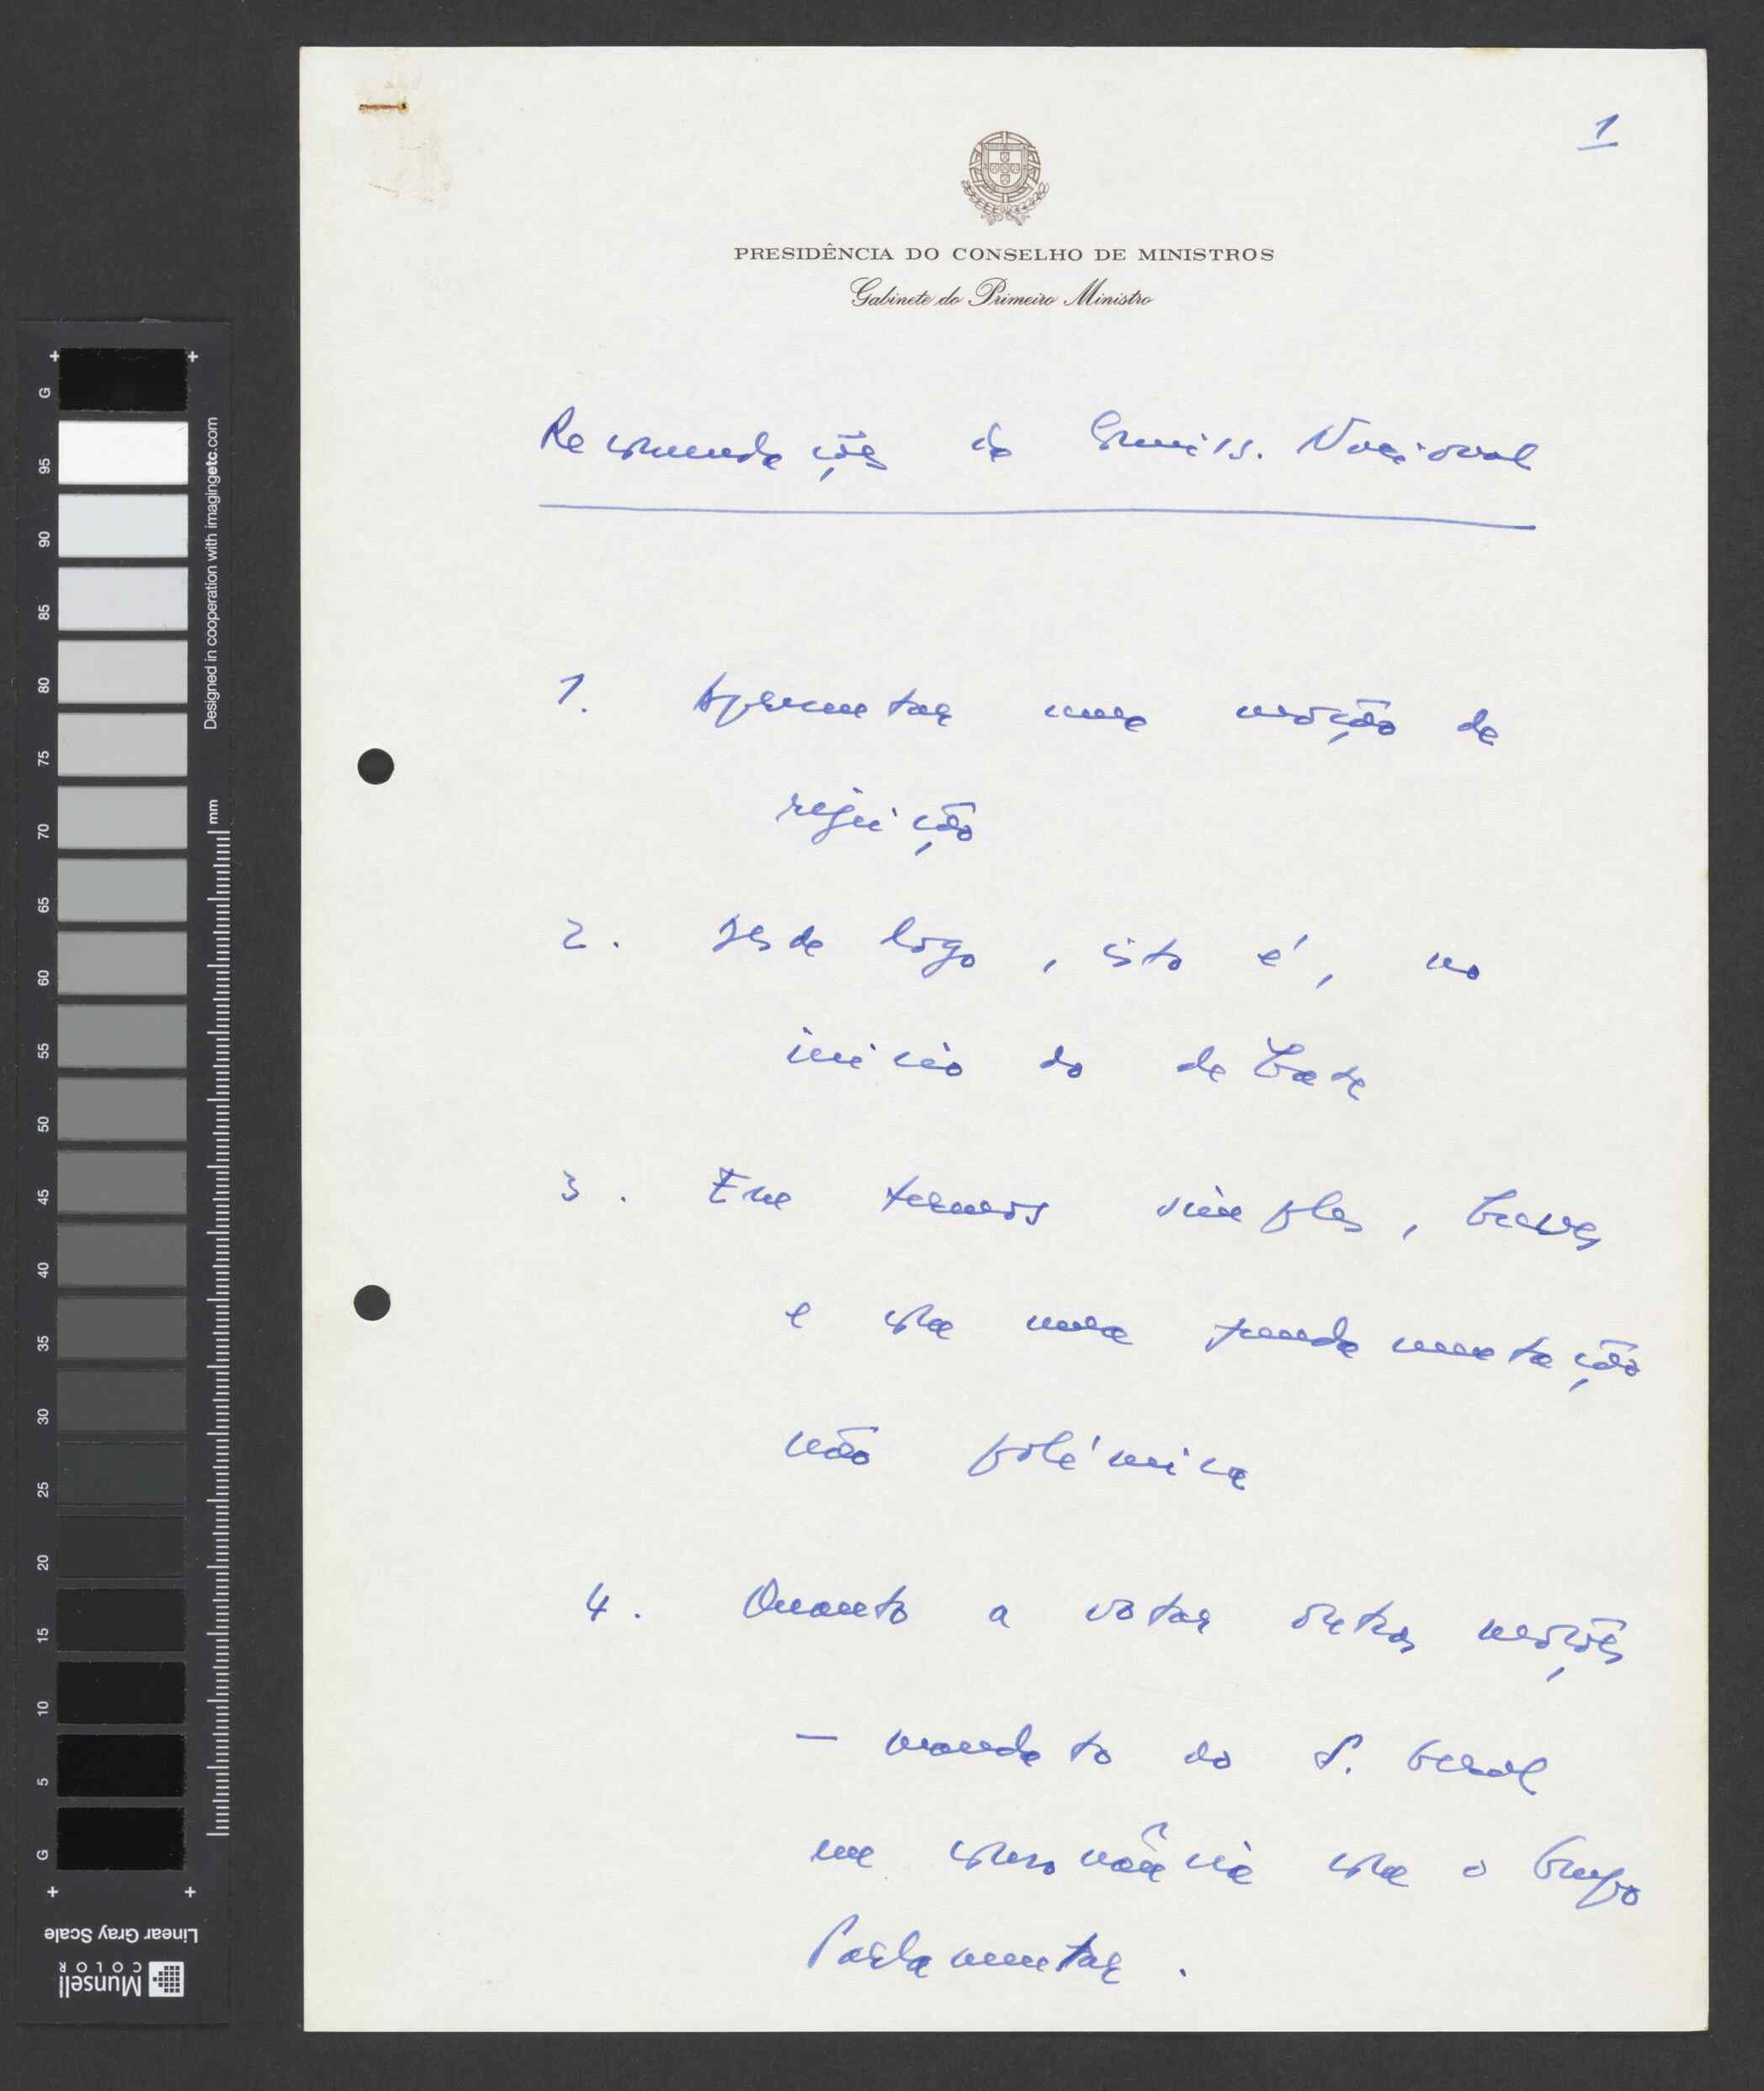 1
PRESIDÊNCIA DO CONSELHO DE MINISTROS
Gabinete do Primeiro Ministro
Recomendações da Comiss. Nacional
1. Apresentar uma moção de
rejeição
2. Desde logo, isto é, no
início do debate
3. Em termos simples, breves
e com uma fundamentação
não polémica
4. Quanto a votar outras moções
— mandato ao S. Geral
em consonância com o Grupo
Parlamentar.
G
95
90
85
80
75
70
65
60
55
50
45
40
35
30
25
20
15
10
5
G
Designed in cooperation with imagingetc.com
mm
Linear Gray Scale
Munsell
COLOR